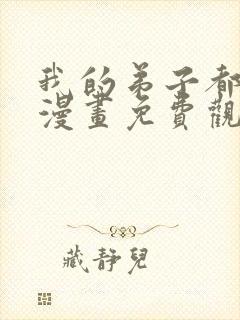 我的弟子都
漫畫免費觀
藏靜兒